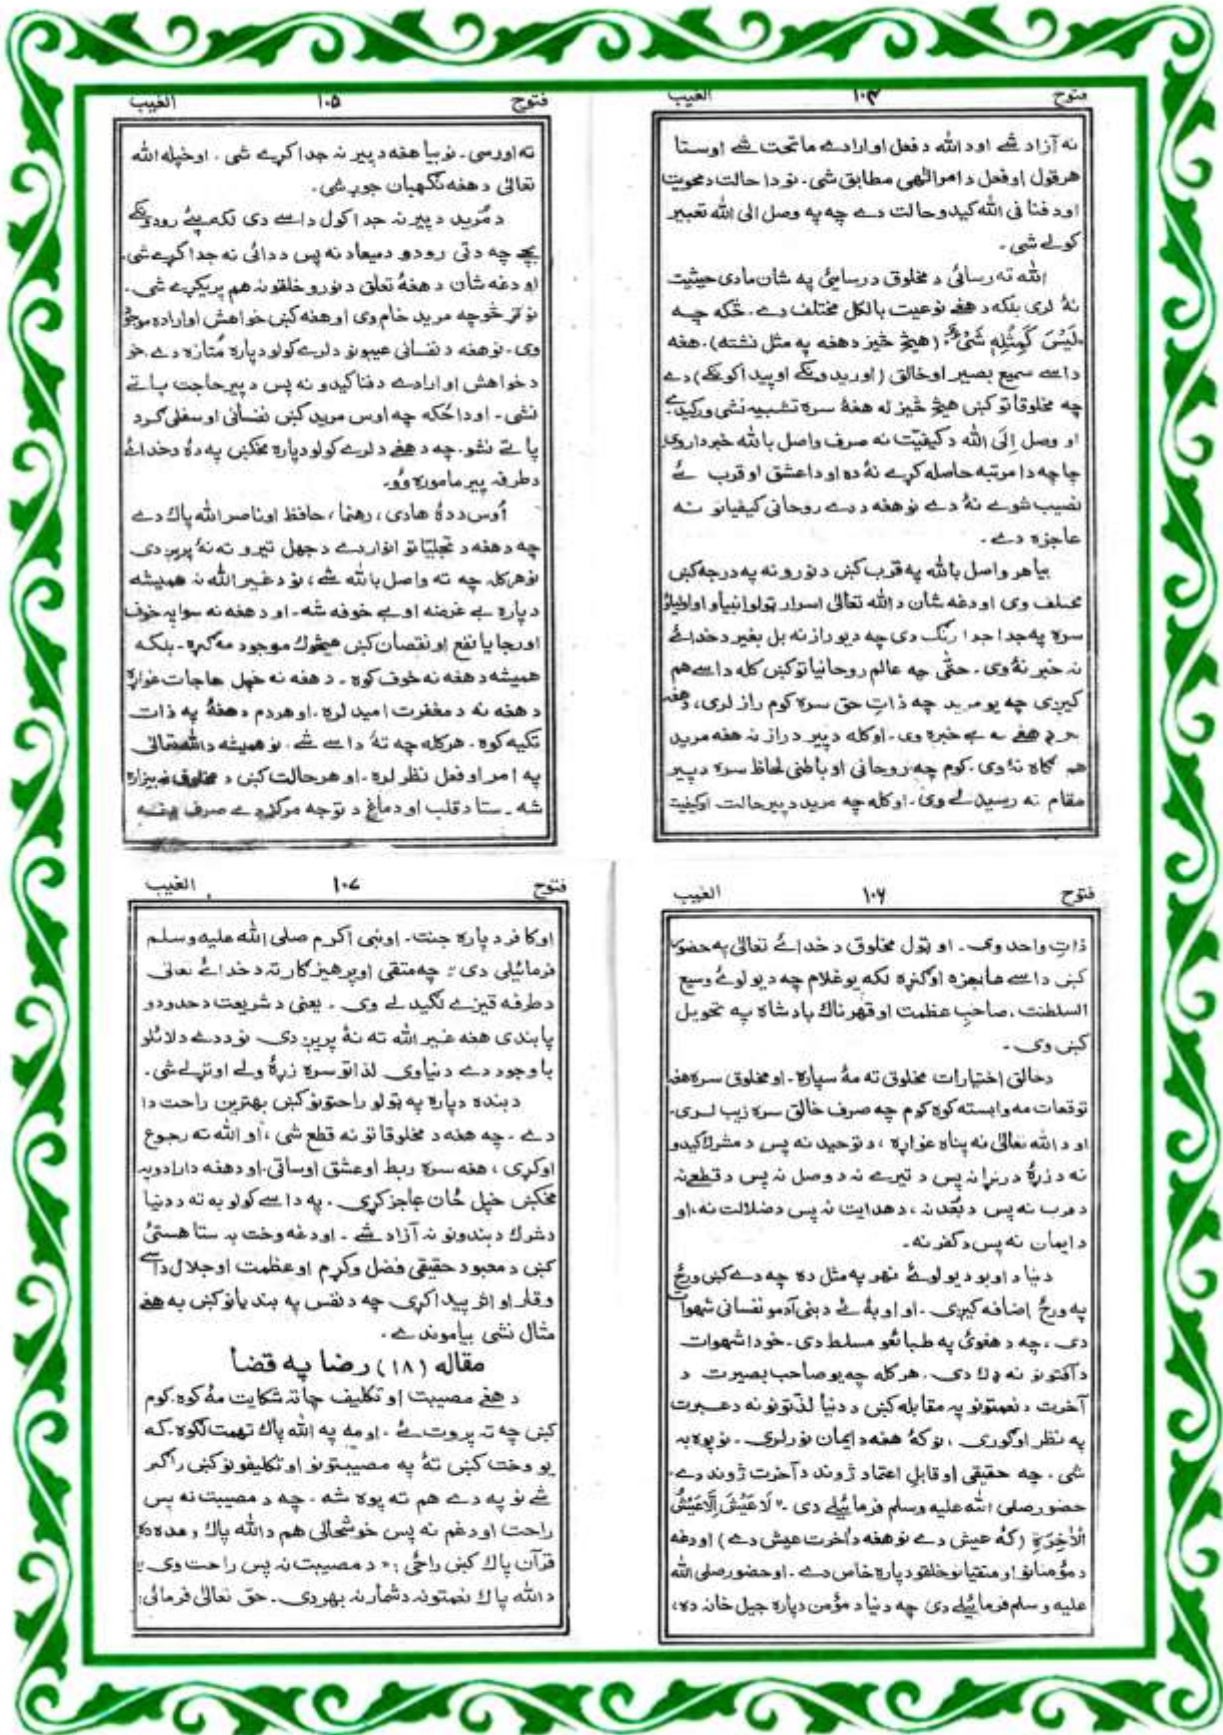 فتوح ۱۰۴ الغیب
نه آزاد شے اود الله د فعل اوارادے ماتحت شے اوستا
هرقول اوفعل د امر الٰهی مطابق شی۔ نودا حالت دمحویت
اود فنا فی الله کیدو حالت دے چه په وصل الی الله تعبیر
کولے شی۔
الله ته رسائی د مخلوق درسایئ په شان مادی حیثیت
نهٔ لری بلکه د هغے نوعیت بالکل مختلف دے۔ څکه چــه
لَیْسَ کَمِثْلِهٖ شَیْءٌ: (هیڅ څیز دهغه په مثل نشته)۔ هغه
داسے سمیع بصیر اوخالق (اوریدونکے اوپیدا کونکے) دے
چه مخلوقاتو کښ هیڅ څیز له هغهٔ سره تشبیه نشی ورکیدے
او وصل اِلَی الله د کیفیّت نه صرف واصل بالله خبرداروی
چاچه دا مرتبه حاصله کرے نهٔ ده او دا عشق او قرب ئے
نصیب شوے نهٔ دے نوهغه ددے روحانی کیفیاتو نــه
عاجزه دے۔
بیا هر واصل بالله په قرب کښ د نورو نه په درجه کښ
مختلف وی اودغه شان د الله تعالیٰ اسرار ټولو انبیاؤ او اولیاؤ
سره په جدا جدا رنگ دی چه دیو رازنه بل بغیر دخدائے
نه خبر نهٔ وی۔ حتّٰی چه عالم روحانیاتو کښ کله داسے هم
کیږی چه یو مرید چه ذاتِ حق سره کوم راز لری، دهغه
هغے نه بے خبره وی۔ اوکله دپیر د راز نه هغه مرید
هم آگاه نهٔ وی۔ کوم چه روحانی او باطنی لحاظ سره د پیر
مقام ته رسیدلے وی۔ اوکله چه مرید د پیر حالت اوکیفیت
فتوح ۱۰۵ الغیب
ته اورسی۔ نو بیا هغه د پیر نه جدا کرے شی۔ اوخپله الله
تعالیٰ د هغه نگهبان جوړشی۔
د مُرید د پیر نه جدا کول داسے دی لکه پئے رودونکے
بچے چه دتی رودو دمیعاد نه پس ددائی نه جدا کرے شی۔
اودغه شان د هغهٔ تعلق د نورو خلقو نه هم پریکرے شی۔
نوتر څوچه مرید خام وی اوهغه کښ خواهش اواراده موجود
وی۔ نوهغه د نفسانی عیبونو دلرے کولو دپاره مُمتازه دے۔ خو
د خواهش اوارادے د فنا کیدو نه پس د پیر حاجت باتے
نشی۔ اودا څکه چه اوس مرید کښ نفسانی اوسفلی گرد
پاتے نشو۔ چه د هغے د لرے کولو دپاره مخکښ په دهٔ دخدائے
دطرفه پیر ماموره وو۔
اُوس ددهٔ هادی، رهنما، حافظ اوناصر الله پاک دے
چه د هغه د تجلیّاتو انوارد ے دجهل تیرو ته نهٔ پریږدی
نوهرکله چه ته واصل بالله شے، نو د غیر الله نه همیشه
دپاره بے غرضه اوبے خوفه شه۔ او د هغه نه سوا په خوف
اورجا یا نفع اونقصان کښ هیڅوک موجود مه گنره۔ بلکــه
همیشه د هغه نه خوف کوه۔ د هغه نه خپل حاجات غواړه
د هغه نه د مغفرت امید لره۔ اوهردم دهغهٔ په ذات
تکیه کوه۔ هرکله چه تهٔ داسے شے۔ نو همیشه د الله تعالیٰ
په امر او فعل نظر لره۔ او هر حالت کښ د مخلوق نه بیزاره
شه۔ ستا د قلب اود ماغ د توجه مرکز دے صرف
فتوح ۱۰۶ الغیب
ذاتِ واحد وی۔ او ټول مخلوق د خدائے تعالیٰ په حضور
کښ داسے عاجزه اوگنره لکه یوغلام چه دیو لوئے وسیع
السلطنت، صاحبِ عظمت او قهرناک پادشاه په تحویل
کښ وی۔
دخالق اختیارات مخلوق ته مهٔ سپاره۔ اومخلوق سره هغه
توقعات مه وابسته کوه کوم چه صرف خالق سره زیب لــری۔
او د الله تعالیٰ نه پناه غواړه، د توحید نه پس د مشرک کیدو
نه د زړهٔ د رنړا نه پس د تیرے نه د وصل نه پس د قطع نه
د قرب نه پس د بُعد نه، د هدایت نه پس د ضلالت نه، او
د ایمان نه پس د کفر نه۔
دنیا د اوبو دیو لوئے نهر په مثل ده چه دے کښ ورځ
په ورځ اضافه کیږی۔ او اوبهٔ ئے د بنی آدمو نفسانی شهوات
دی، چه د هغوئ په طبائعو مسلط دی۔ خو دا شهوات
د آفتونو نه ډک دی۔ هرکله چه یو صاحب بصیرت د
آخرت د نعمتونو په مقابله کښ د دنیا لذّتونو نه د عــبرت
په نظر اوگوری، نوکهٔ هغه د ایمان نور لری۔ نو پوه به
شی۔ چه حقیقی او قابلِ اعتماد ژوند د آخرت ژوند دے۔
حضور صلی الله علیه وسلم فرمائیلے دی۔ "لَا عَیْشَ اِلَّا عَیْشُ
الْاٰخِرَةِ (کهٔ عیش دے نوهغه د آخرت عیش دے) اودغه
د مؤمنانو او متقیانو خلقو دپاره خاص دے۔ او حضور صلی الله
علیه وسلم فرمائیلے دی چه دنیا د مؤمن دپاره جیل خانه ده،
فتوح ۱۰۷ الغیب
اوکافر دپاره جنت۔ اونبی اکرم صلی الله علیه وسلم
فرمائیلی دی: چه متقی اوپرهیزگار ته د خدائے تعالیٰ
دطرفه قیزے لگیدلے وی۔ یعنی د شریعت د حدودو
پابندی هغه غیر الله ته نهٔ پریږدی۔ نو ددے دلائلو
باوجود دے دنیاوی لذاتو سره زړهٔ ولے اوتړلے شی۔
دبنده دپاره په ټولو راحتونو کښ بهترین راحت دا
دے۔ چه هغه د مخلوقاتو نه قطع شی، او الله ته رجوع
اوکړی، هغه سره ربط اوعشق اوساتی۔ او دهغه د ارادو په
مخکښ خپل ځان عاجز کړی۔ په داسے کولو به ته د دنیا
دشرک د بندونو نه آزاد شے۔ اودغه وخت به ستا هستئ
کښ د معبود حقیقی فضل وکرم اوعظمت اوجلال داسے
وقار او اثر پیدا کړی چه د نفس په بندیانو کښ به هغے
مثال نشی بیاموندے۔
مقاله (۱۸) رضا په قضا
د هغے مصیبت او تکلیف چاته شکایت مهٔ کوه۔ کوم
کښ چه ته پروت ئے۔ اومه په الله پاک تهمت لگوه۔ کــه
یو وخت کښی تهٔ په مصیبتونو او تکلیفونو کښ راگیر
شے نو په دے هم ته پوه شه۔ چه د مصیبت نه پس
راحت اود غم نه پس خوشحالی هم د الله پاک وعده ده۔
قرآن پاک کښ راځی: "د مصیبت نه پس راحت وی"
د الله پاک نعمتونه دشمار نه بهر دی۔ حق تعالیٰ فرمائی: